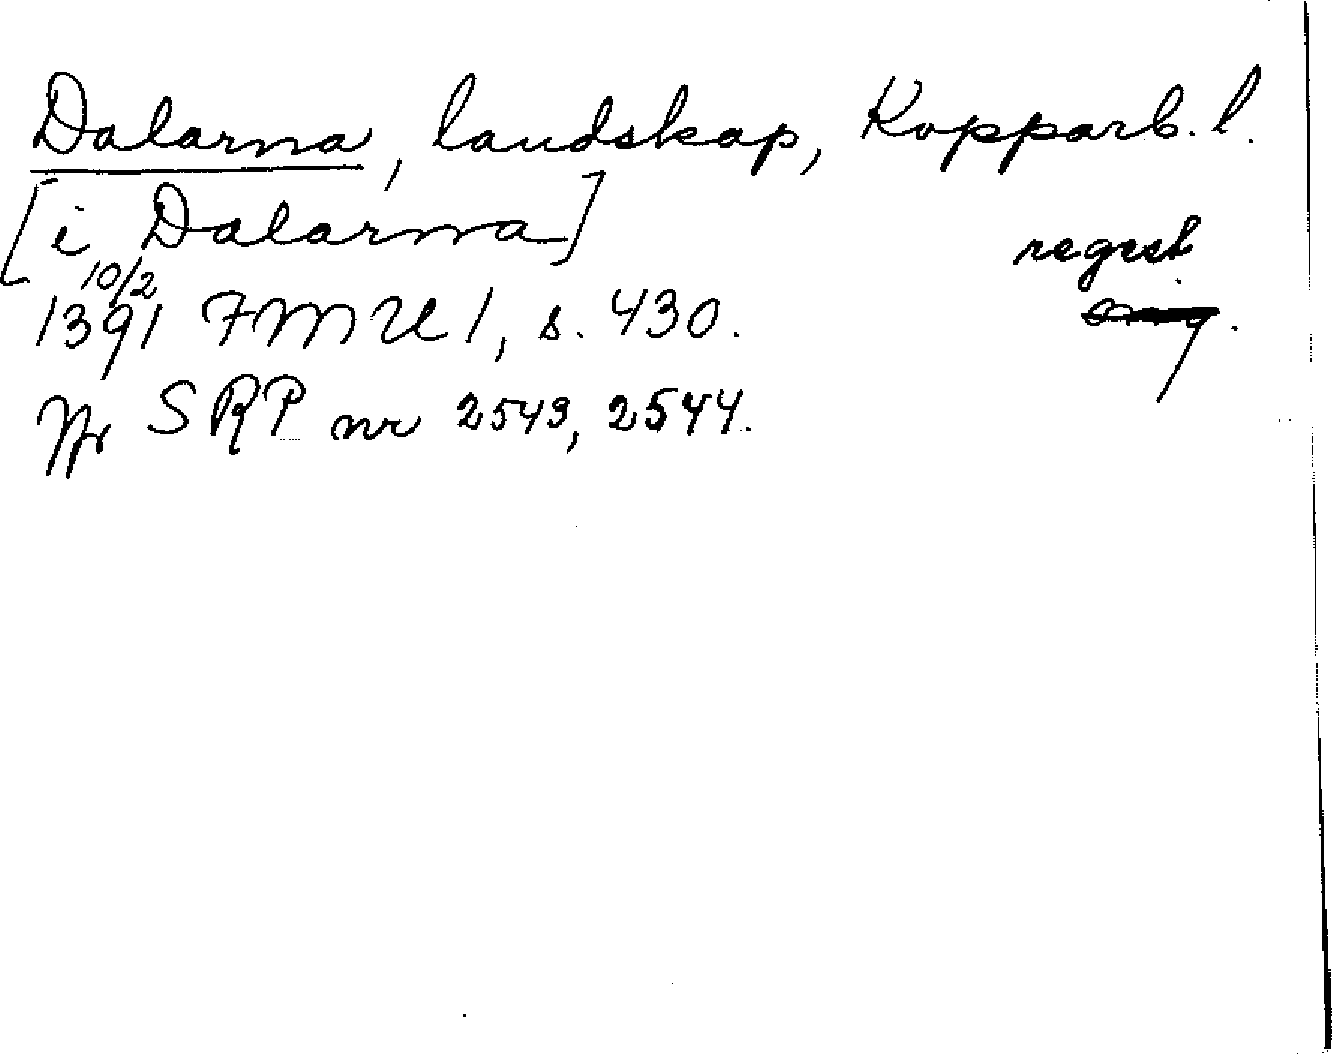 Dalarna, landskap, Kopparb. l.
[i Dalarna]
regest
10/2
1391 FMU 1, s. 430.
Jfr SRP nr 2543, 2544.